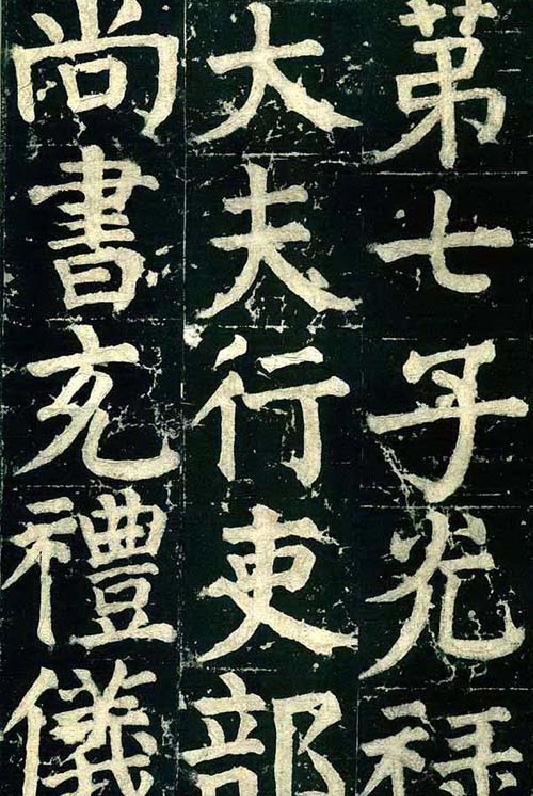 第七子光祿
大夫行吏部
尚書充禮儀